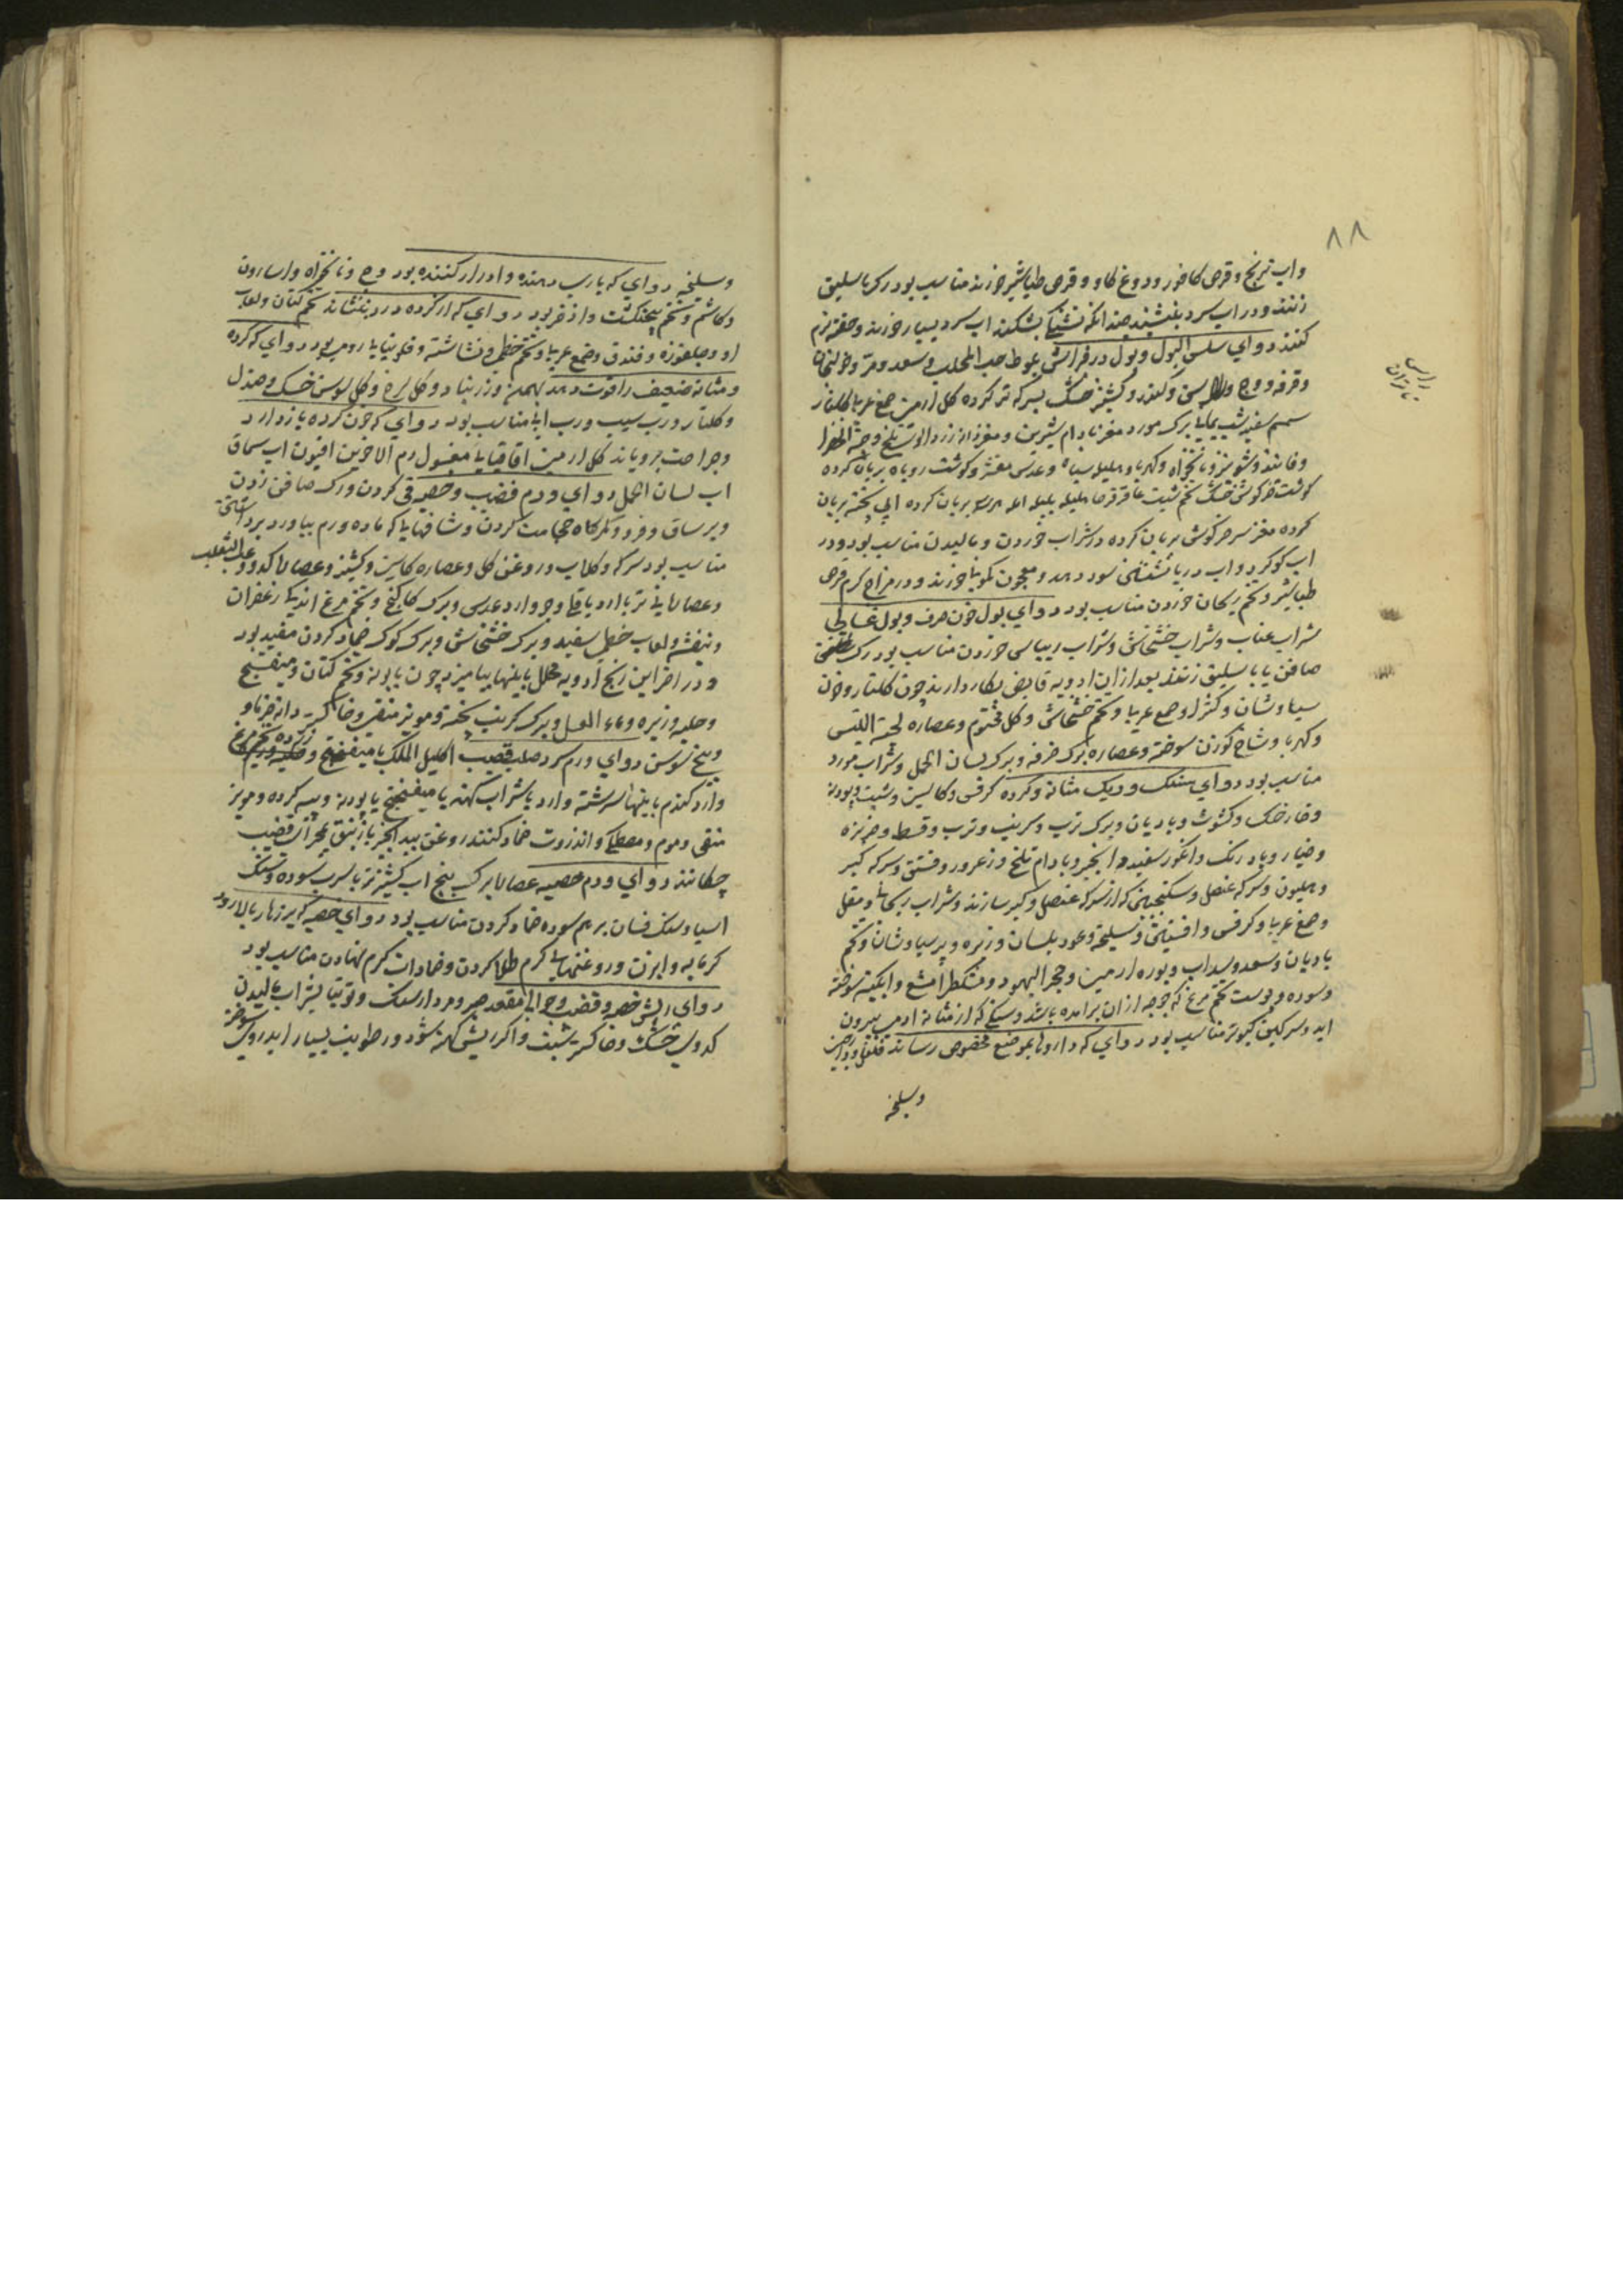 ۸۸
واب ترنج وقرص کافور ودوغ کاو وقرص طباشیر خورند مناسب بود رک باسلیق
زنند ودر اب سرد بنشیند چندانکه تشنکی بشکند اب سرد بسیار خورند وحقنه نرم
کنند دوای سلس البول وبول در فراش بلوط حب المحلب وسعد ومر وخولنجان
وقرفه ووج وکندر وکشنیز خشک بسرکه تر کرده کل ارمنی صمغ عربی کلنار
سمسم سفید شب یمانی برک مورد مغز بادام شیرین ومغز وحبة الخضرا
وفانیذ وشونیز ونانخواه وکهربا وهلیله سیاه وعدس مقشر وکوشت روباه بریان کرده
کوشت خرکوش خشک تخم شبت عاقرقرحا هلیله بلیله املهٔ بریان کرده پخته بریان
کرده مغز سر خرکوش بریان کرده در شراب خوردن ومالیدن مناسب بود ودر
اب کوکرد واب دریا نشستن سود دهد ومعجون خورند ودر مزاج کرم قرص
طباشیر وتخم ریحان خوردن مناسب بود دوای بول خون صرف وبول غسالی
شراب عناب وشراب خشخاش وشراب ریباس خوردن مناسب بود رک
صافن یا باسلیق زنند بعد از ان ادویه قابض بکار دارند چون کلنار وخون
سیاوشان وکثیرا وصمغ عربی وتخم خشخاش وکل مختوم وعصاره لحیة التیس
وکهربا وشاخ کوزن سوخته وعصاره برک خرفه وبرک لسان الحمل وشراب مورد
مناسب بود دوای سنک وریک مثانه وکرده کرفس وکاسنی وشبت وپودنه
وخارخسک وکشوث وبادیان وبرک ترب وکرنب وترب وقسط وخربزه
وخیار وبادرنک وانکور سفید وانجیر وبادام تلخ وزعرور وفستق وسرکه کبر
وهلیون وسرکه عنصل وسکنجبین که از سرکه عنصل وکبر سازند وشراب ریحانی ومقل
وصمغ عربی وکرفس وافسنتین وسلیخه وعود بلسان وزیره وپرسیاوشان وتخم
بادیان وسعد وسداب وبوره ارمنی وحجر الیهود ومشکطرامشع وابکینه سوخته
وسوده وپوست تخم مرغ که جوجه از ان برامده باشد وسنکی که از مثانه ادمی بیرون
اید وسرکین کبوتر مناسب بود دوای که داروها بموضع مخصوص رساند فلفل ودارچینی
وسلیخه
وسلیخه دوای که یاری دهنده وادرار کننده بود وج ونانخواه واسارون
وکاشم وتخم پنجنکشت واذخر بود دوای که از کرده درد بنشاند تخم کتان ولعاب
او وجلغوزه وفندق وصمغ عربی وتخم خطمی ونشاسته وفلونیای رومی بود دوای که کرده
ومثانه ضعیف را قوت دهد بهمن وزرنباد وکل سرخ وکل سوسن خشک وصندل
وکلنار ورب سیب ورب مناسب بود دوای که خون کرده بازدارد
وجراحت برویاند کل ارمنی اقاقیای مغسول دم الاخوین افیون اب سماق
اب لسان الحمل دوای ورم قضیب وخصیه قی کردن ورک صافن زدن
وبر ساق وفرود کمرکاه حجامت کردن وشافهای که ماده ورم بیاورد برداشتن
مناسب بود سرکه وکلاب وروغن کل وعصاره کاسنی وکشنیز وعصارهٔ کدو وعنب الثعلب
وعصارهای تر با ارد باقلی وجو وارد عدس وبرک کاکنج وتخم مرغ اندکی زعفران
وبنفشه ولعاب خطمی سفید وبرک خشخاش وبرک کوک ضماد کردن مفید بود
ودر اخر این رنج ادویه محلل با اینها بیامیزند چون بابونه وتخم کتان ومیفختج
وحلبه وزیره وماء العسل وبرک کرنب پخته ومویز منقی وخاکستر دانه خرما و
وبیخ سوسن دوای ورم سرد صلب قضیب اکلیل الملک با میفختج زرده تخم مرغ
وارد کندم با اینها سرشته وارد با شراب کهنه یا میفختج با پودنه وپیه کرده ومویز
منقی وموم ومصطکی وانزروت ضماد کنند روغن بیدانجیر با زنبق بمجرای قضیب
چکانند دوای ورم خصیه عصارهٔ برک بنج اب کشنیز تر با سرب سوده وسنک
اسیا وسنک فسان بر هم سوده ضماد کردن مناسب بود دوای خصیه که بر زهار بالا رود
کرمابه وابزن وروغنهای کرم طلا کردن وضمادات کرم نهادن مناسب بود
دوای ریش خصیه وقضیب وحوالی مقعد صبر ومردارسنک وتوتیا بشراب مالیدن
کدوی خشک وخاکستر شبت واکر ریش کهنه شود ورطوبت بسیار اید روی سوخته